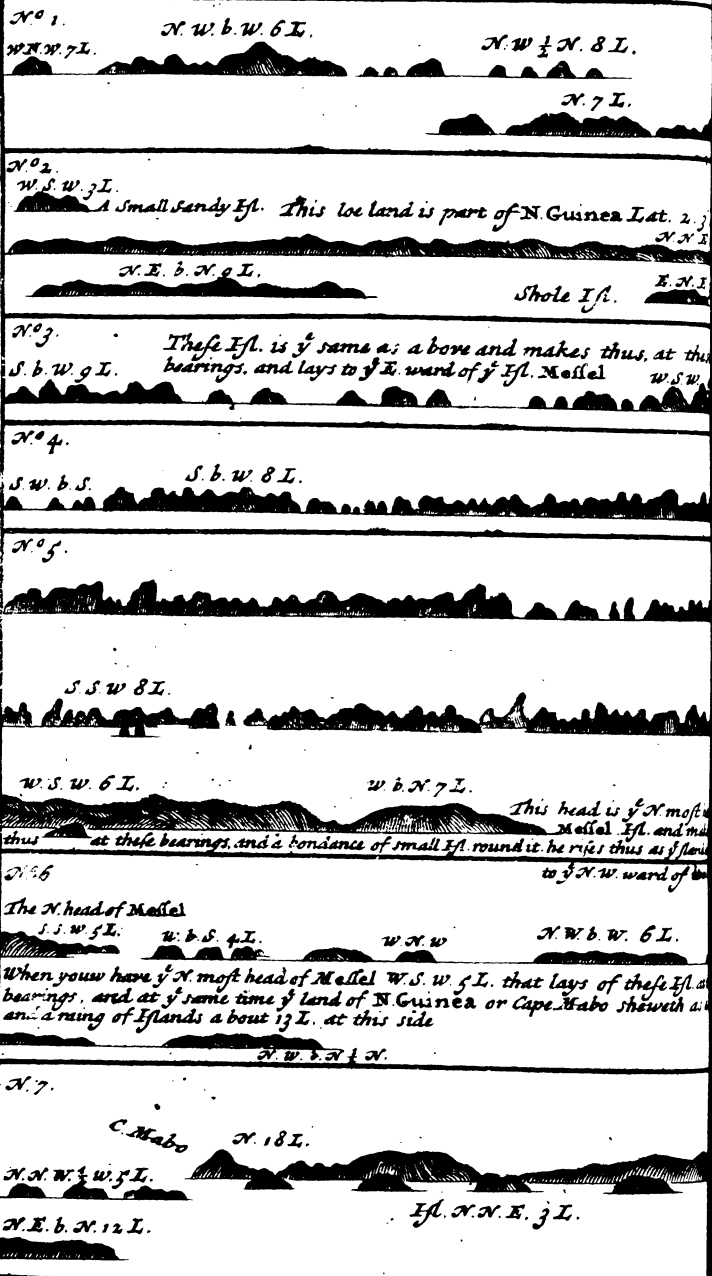 N.º 1.
W.N.W. 7 L.
N. W. b. W. 6 L.
N. W ½ N. 8 L.
N. 7 L.
N.º 2.
W. S. W. 3 L.
A Small Sandy Iſl.
This loe land is part of N. Guinea Lat. 2. 3
N. N. E
N. E. b. N. 9 L.
Shole Iſl.
E. N. E
N.º 3.
Theſe Iſl. is yᵉ same as a bove and makes thus, at thus
bearings, and lays to yᵉ E. ward of yᵉ Iſl. Meſſel
S. b. W. 9 L.
W. S. W.
N.º 4.
S. W. b. S.
S. b. W. 8 L.
N.º 5.
S. S. W 8 L.
W. S. W. 6 L.
W. b. N. 7 L.
This head is yᵉ N. moſt
Meſſel Iſl. and
thus at theſe bearings, and a bondance of small Iſl. round it. he riſes thus as yᵉ
to yᵉ N. W. ward of
N.º 6
The N. head of Meſſel
S. S. W. 5 L.
W. b. S. 4 L.
W N. W
N. W b. W. 6 L.
When youw have yᵉ N. moſt head of Meſſel W. S. W. 5 L. that lays of theſe Iſl. at
bearings, and at yᵉ same time yᵉ land of N. Guinea or Cape Mabo sheweth as
and a raing of Iſlands a bout 13 L. at this side
N. W. b. N ½ N.
N. 7.
C. Mabo
N. 18 L.
N. N. W. ½ W. 5 L.
Iſl. N. N. E. 3 L.
N. E. b. N. 12 L.